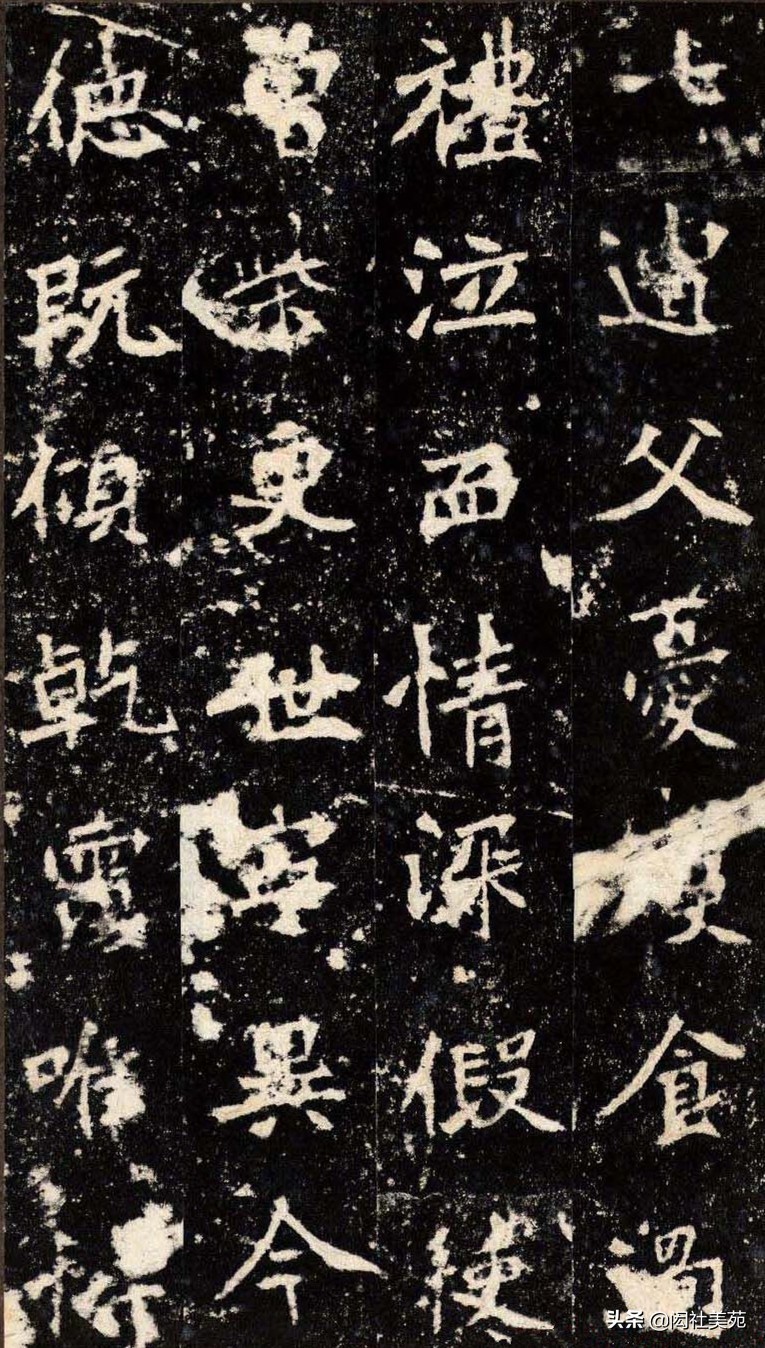 七遭父憂食過
禮泣血情深假使
曾柴更世寧異今
德既傾乾覆唯恃
头条 @闳社美苑